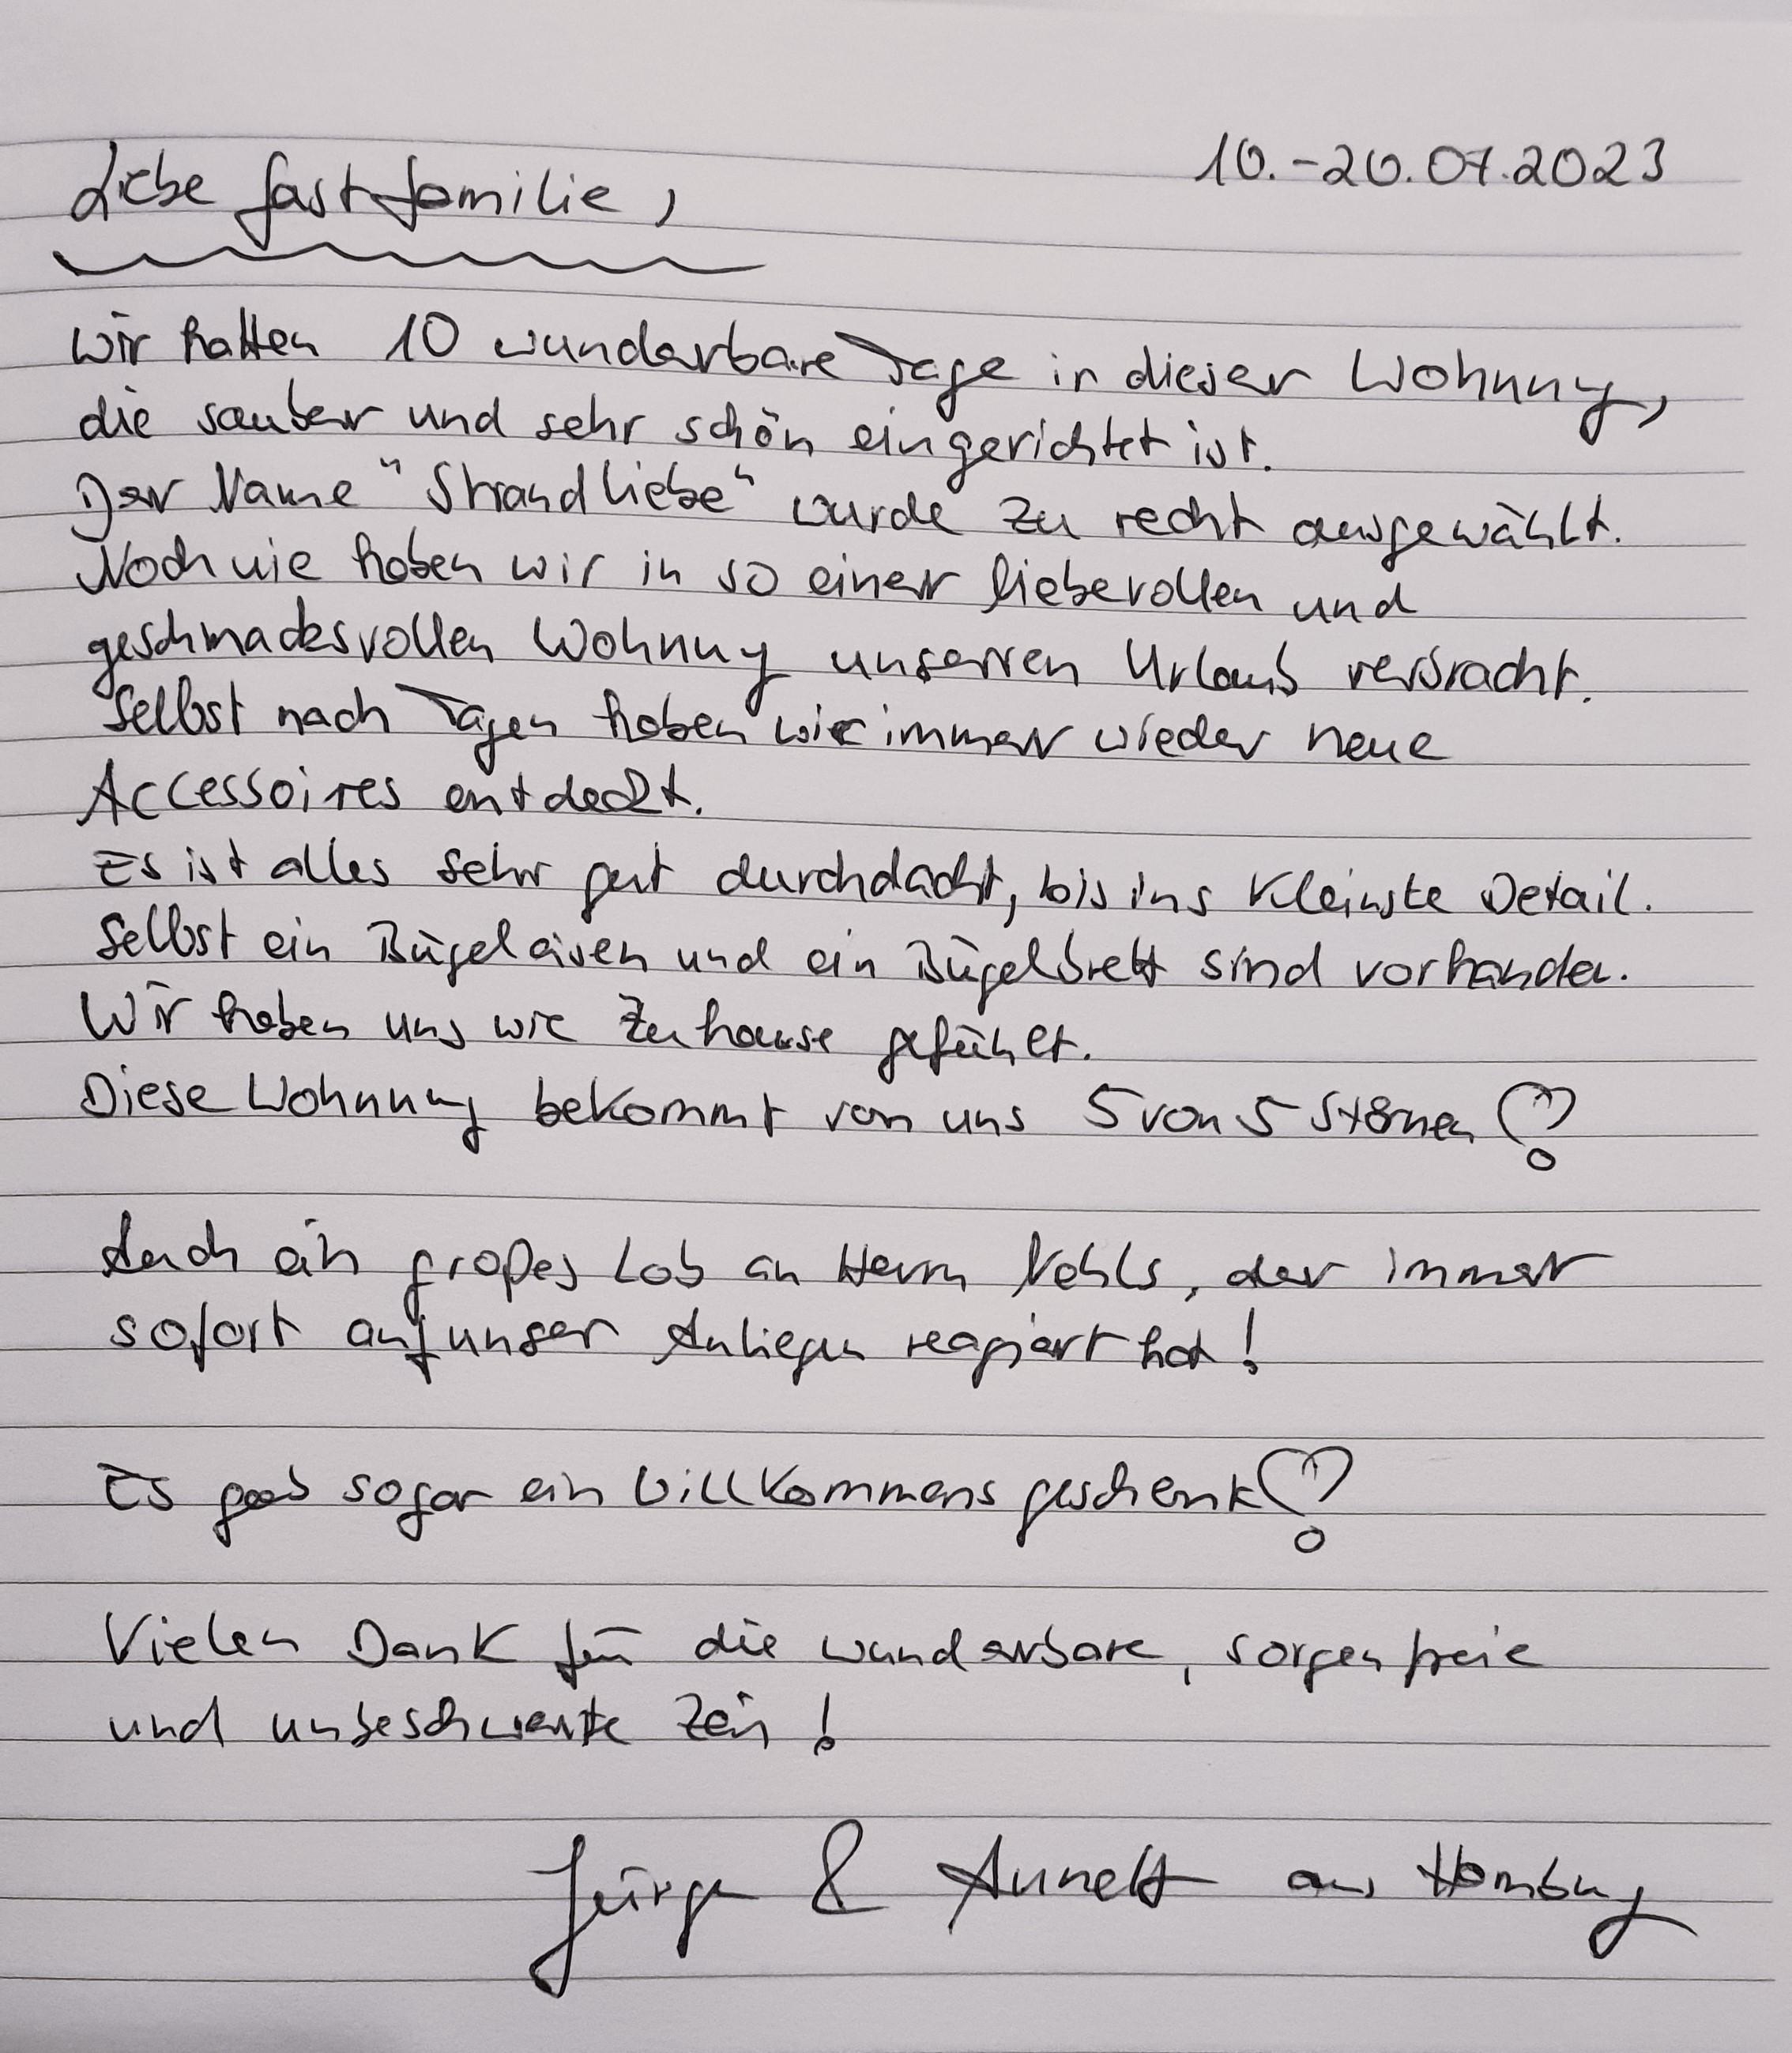 10.-20.07.2023
Liebe Gastfamilie,
wir hatten 10 wunderbare Tage in dieser Wohnung,
die sauber und sehr schön eingerichtet ist.
Der Name "Strandliebe" wurde zu recht ausgewählt.
Noch nie haben wir in so einer liebevollen und
geschmacksvollen Wohnung unseren Urlaub verbracht.
Selbst nach Tagen haben wir immer wieder neue
Accessoires entdeckt.
Es ist alles sehr gut durchdacht, bis ins Kleinste Detail.
Selbst ein Bügeleisen und ein Bügelbrett sind vorhanden.
Wir haben uns wie Zuhause gefühlt.
Diese Wohnung bekommt von uns 5 von 5 Sternen
Auch ein großes Lob an Herrn Nehls, der immer
sofort auf unser Anliegen reagiert hat!
Es gab sogar ein Willkommensgeschenk
Vielen Dank für die wunderbare, sorgenfreie
und unbeschwerte Zeit!
Jürgen & Annett aus Hamburg